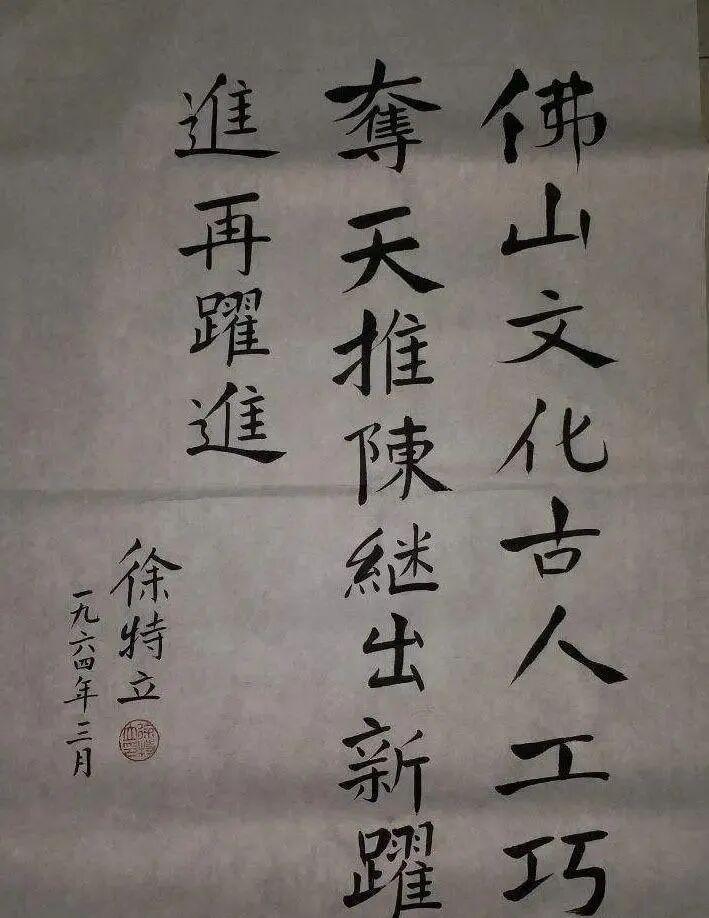 佛山文化古人工巧
奪天推陳継出新躍
進再躍進
徐特立
一九六四年三月